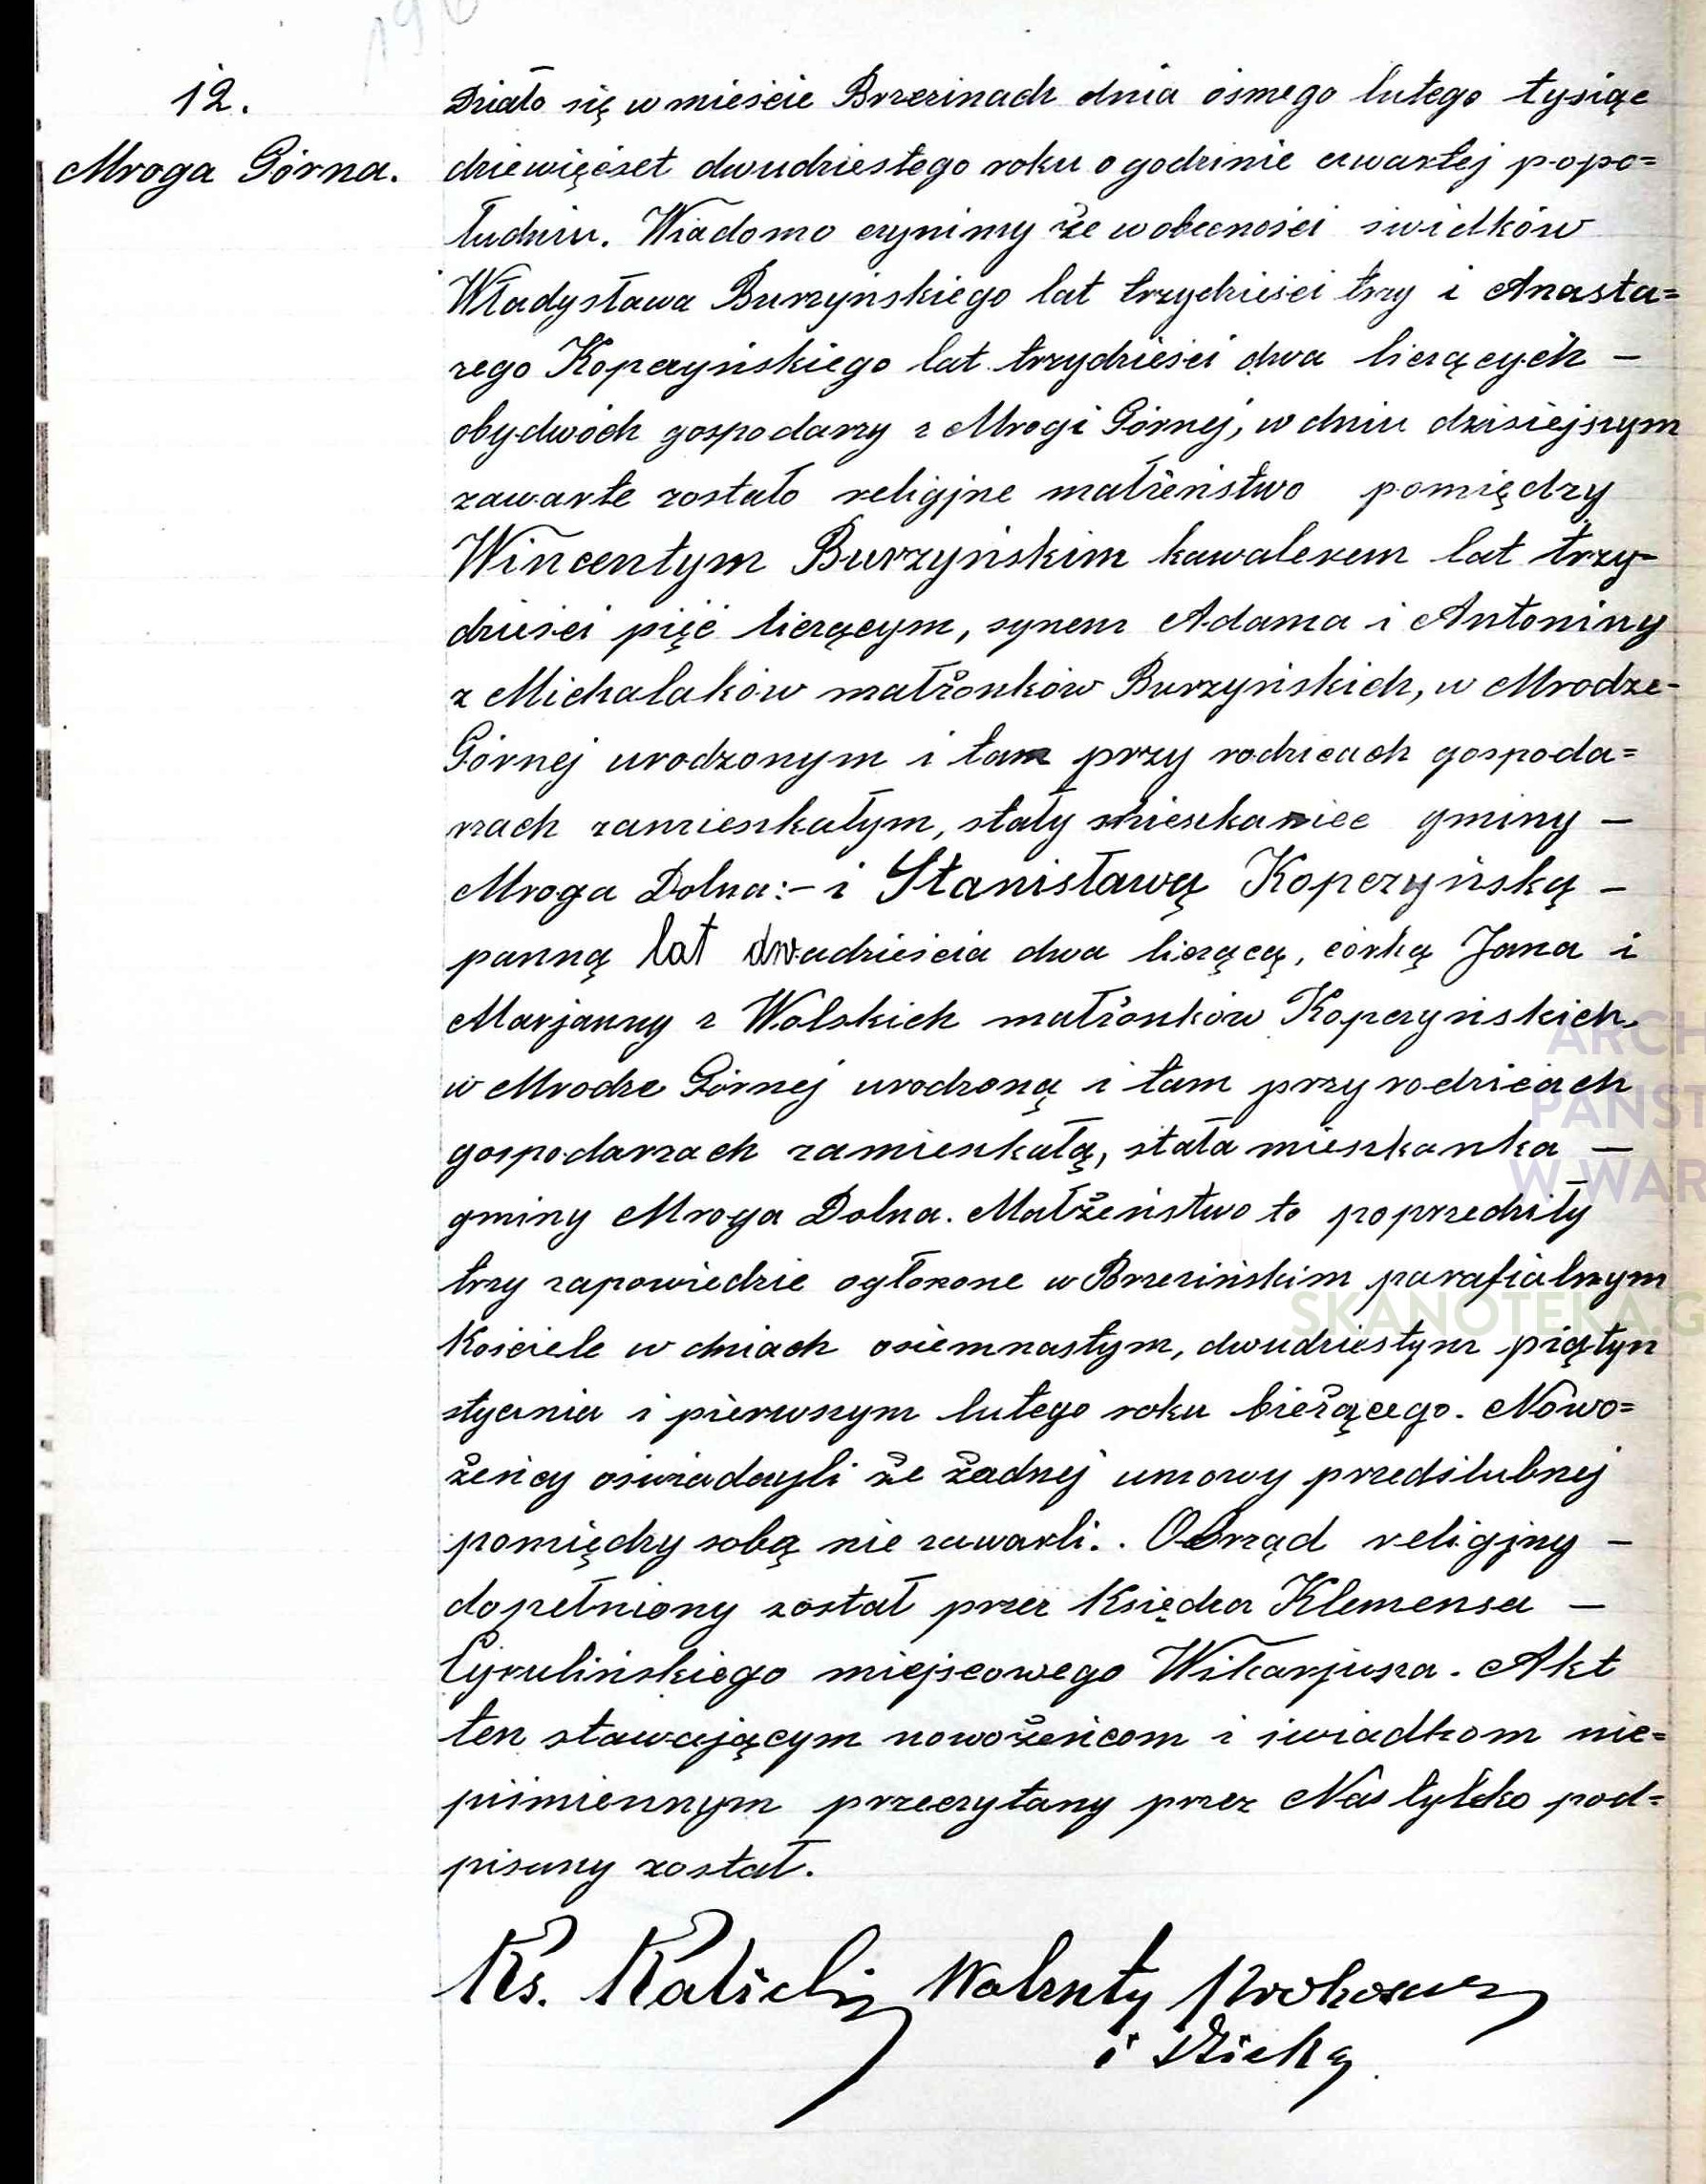 12.
Mroga Górna.
Działo się w mieście Brzezinach dnia ósmego lutego tysiąc
dziewięćset dwudziestego roku o godzinie czwartej popo=
łudniu. Wiadomo czynimy że w obecności świdków
Władysława Burzyńskiego lat trzydzieści trzy i Anasta=
zego Kopczyńskiego lat trzydzieści dwa liczących —
obydwóch gospodarzy z Mrogi Górnej, w dniu dzisiejszym
zawarte zostało religijne małżeństwo pomiędzy
Wincentym Burzyńskim kawalerem lat trzy-
dzieści pięć liczącym, synem Adama i Antoniny
z Michalaków małżonków Burzyńskich, w Mrodze-
Górnej urodzonym i tam przy rodzicach gospoda=
rzach zamieszkałym, stały mieszkaniec gminy —
Mroga Dolna:- i Stanisławą Kopczyńską —
panną lat dwadzieścia dwa liczącą, córką Jana i
Marjanny z Wolskich małżonków Kopczyńskich,
w Mrodze Górnej urodzoną i tam przy rodzicach
gospodarzach zamieszkałą, stała mieszkanka —
gminy Mroga Dolna. Małżeństwo to poprzedziły
trzy zapowiedzie ogłoszone w Brzezińskim parafialnym
Kościele w dniach osiemnastym, dwudziestym piątym
stycznia i pierwszym lutego roku bieżącego. Nowo=
żeńcy oświadczyli że żadnej umowy przedślubnej
pomiędzy sobą nie zawarli.. Obrząd religijny —
dopełniony został przez Księdza Klemensa —
Cyrulińskiego miejscowego Wikarjusza. Akt
ten stawającym nowożeńcom i świadkom nie=
piśmiennym przeczytany przez Nas tylko pod=
pisany został.
Ks.
i
ARCH
PAŃST
W WAR
SKANOTEKA.G